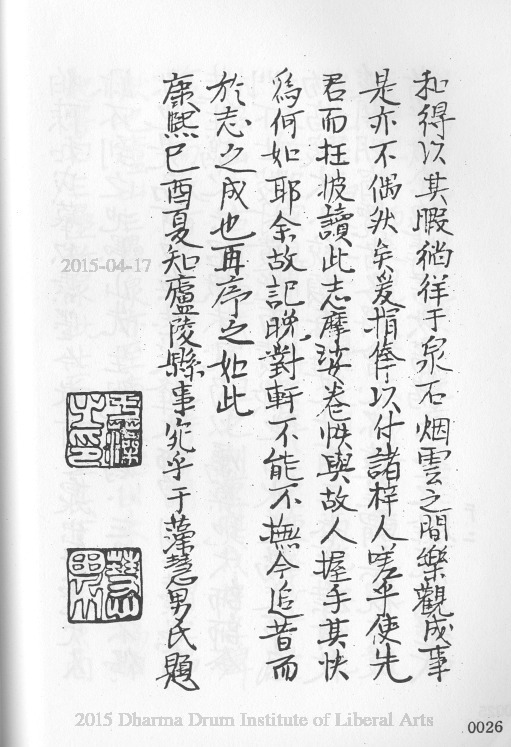 和得以其暇徜徉于泉石烟雲之間樂觀成事
是亦不偶然矣爰捐俸以付諸梓人嗟乎使先
君而在披讀此志摩娑卷帙與故人握手其快
為何如耶余故記晚對軒不能不撫今追昔而
於志之成也再序之如此
康熙己酉夏知廬陵縣事平于藻慧男氏題
2015-04-17
2015 Dharma Drum Institute of Liberal Arts
0026